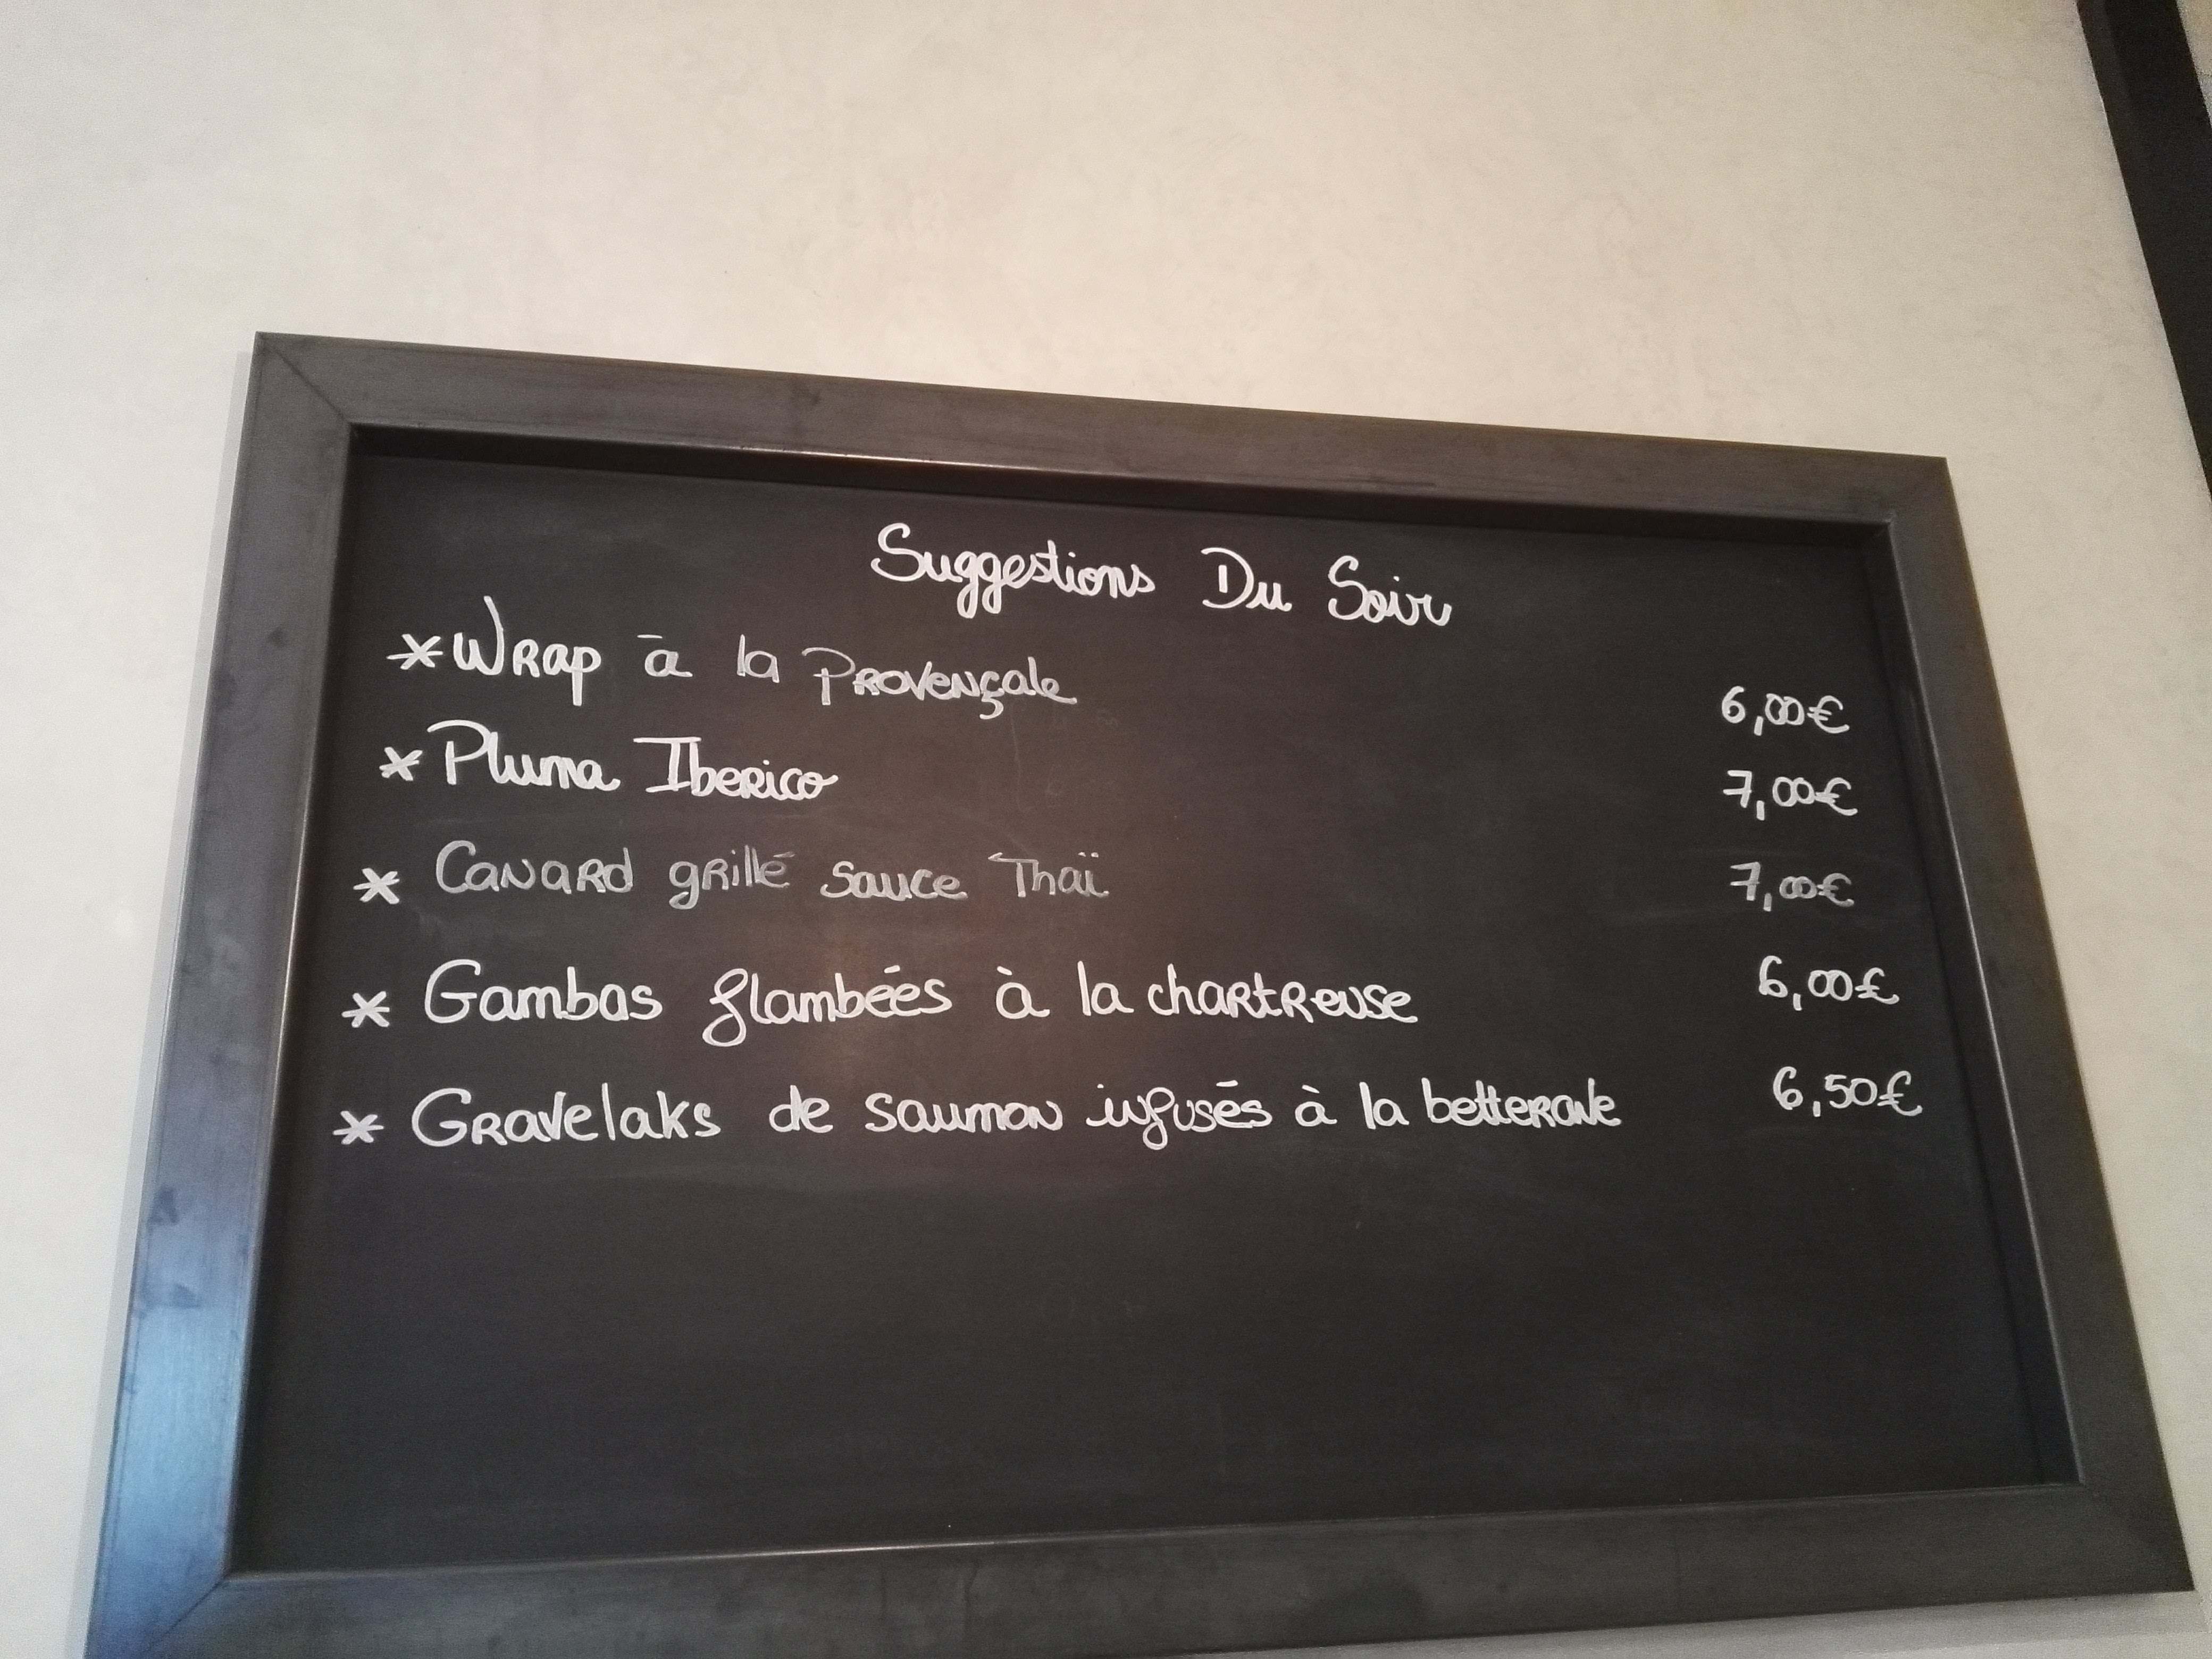 Suggestions Du Soir
* Wrap à la Provençale 6,00€
* Pluma Iberico 7,00€
* Canard grillé sauce Thaï 7,00€
* Gambas flambées à la chartreuse 6,00€
* Gravelaks de saumon infusés à la betterave 6,50€